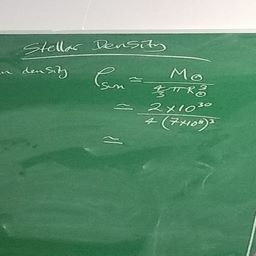 Stellar Density
n density ρsun ≃ M⊙ / 4/3 π R⊙³
≃ 2×10³⁰ / 4 (7×10⁸)³
≃